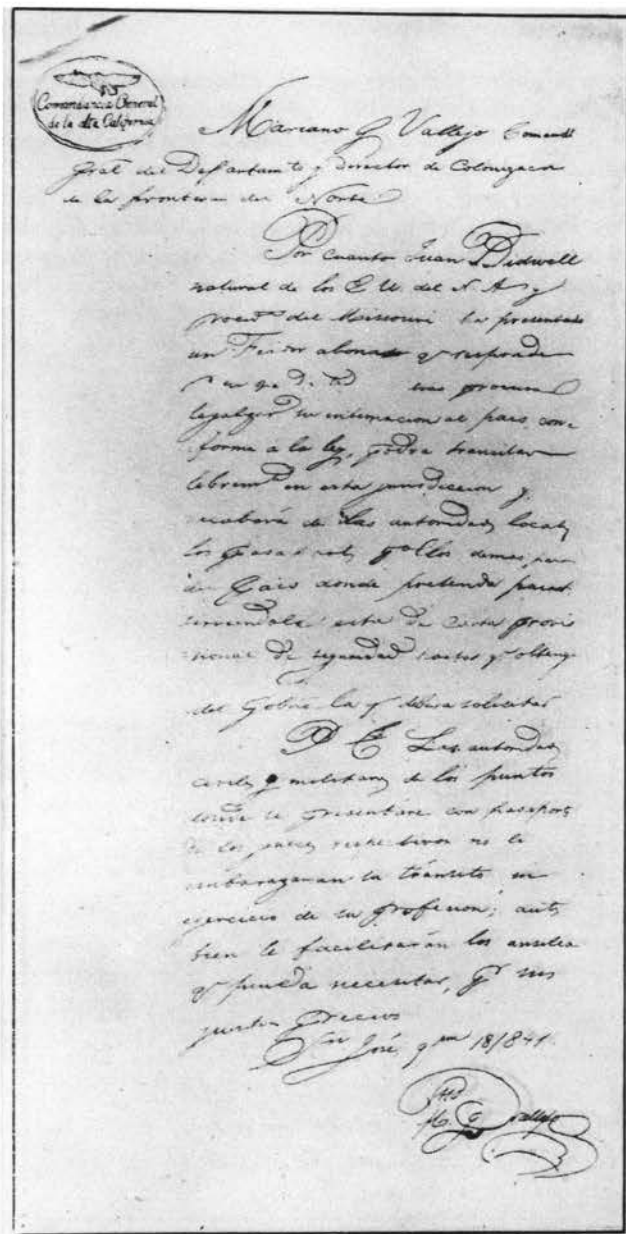 Comandancia General
de la alta California
Mariano G Vallejo Comand
Gral del Departam.to y director de Colonizacn
de la frontera del Norte
Por cuanto Juan Bidwell
natural de los E U. del N. A y
del Missouri ha presentado
un Fiador abonado qe responde
legalizar su internacion al pais, con-
forme a la ley, podrá transitar
librem.te en esta jurisdiccion y
recabará de las autoridades locales
los demas
donde pretenda
sirviendole esta de Carta provi
sional de seguridad qe obtenga
del Gobno la qe debera solicitar
P. E. Las autoridades
civiles y militares de los puntos
donde se presentáre con pasaporte
de los jueces respectivos no le
embarazaran su tránsito ni
ejercicio de su profesion; antes
bien le facilitarán los ausilios
qe pueda necesitar, pr sus
justos precios
San José, 9bre 18/841.
M. G Vallejo